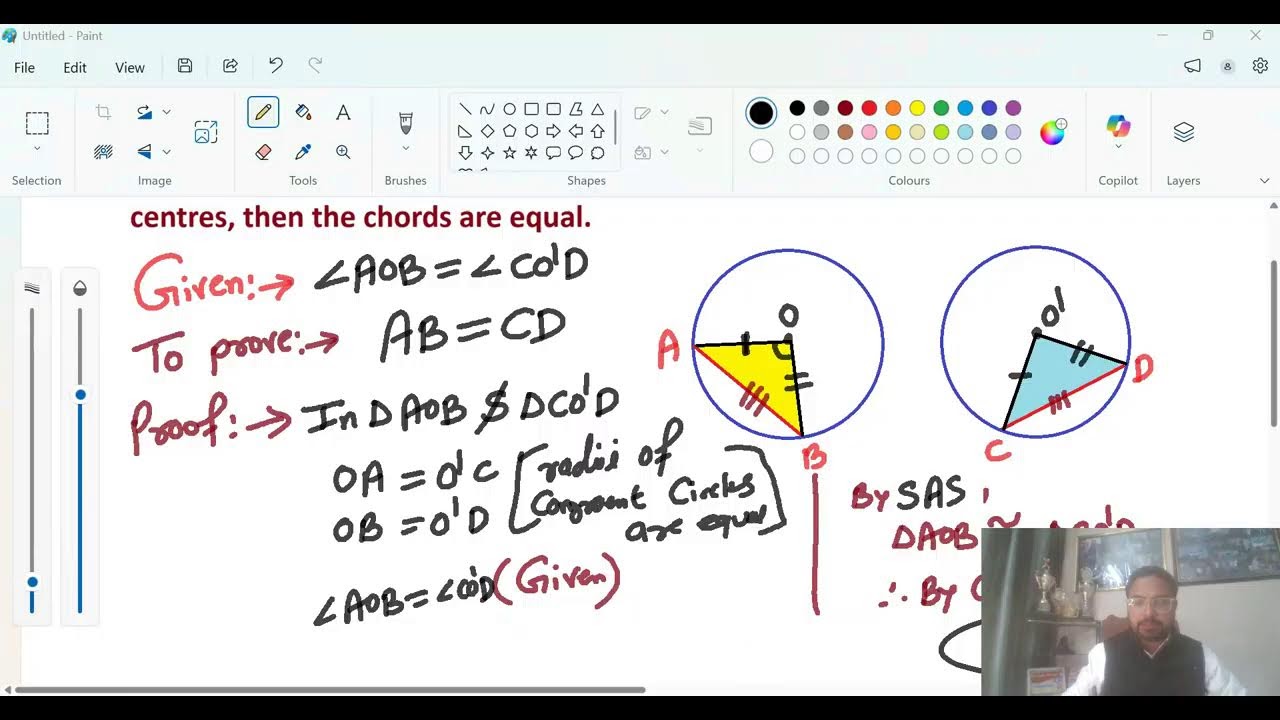 Untitled - Paint
File Edit View
Selection Image Tools Brushes Shapes Colours Copilot Layers
centres, then the chords are equal.
Given:→ ∠AOB = ∠CO'D
To prove:→ AB = CD
Proof:→ In Δ AOB & ΔCO'D
OA = O'C [radius of
OB = O'D Congruent Circles
are equal]
∠AOB = ∠CO'D (Given)
O
A
B
O'
D
C
By SAS,
ΔAOB ≅
∴ By